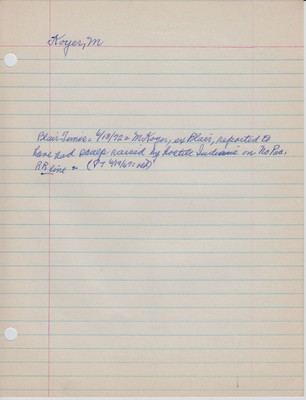 Koyer, M
Blair Times = 6/13/72 = M Koyer, ex Blair, reported to
have had scalp raised by hostile Indians on No Pac.
RR line =